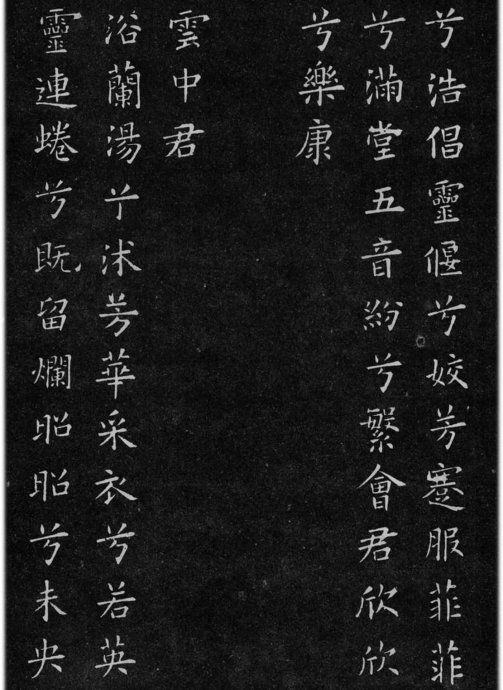 兮浩倡靈偃兮姣芳蹇服菲菲
兮滿堂五音紛兮繁會君欣欣
兮樂康
雲中君
浴蘭湯兮沐芳華采衣兮若英
靈連蜷兮既留爛昭昭兮未央